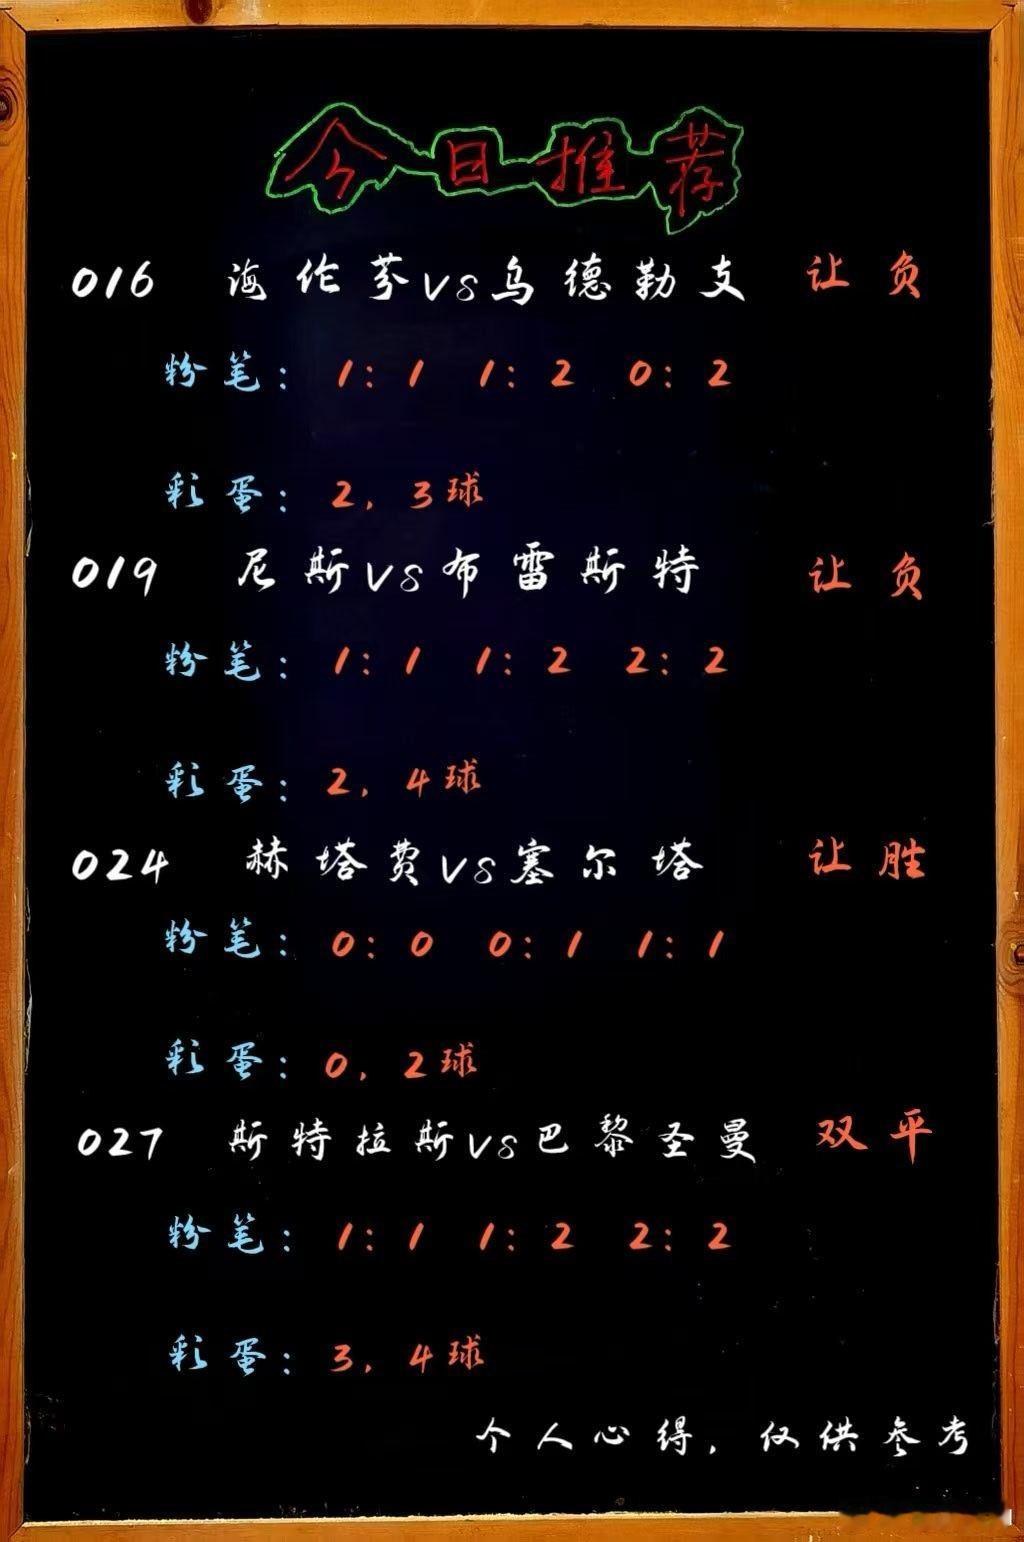 今日推荐
016 海伦芬VS乌德勒支 让负
粉笔: 1:1 1:2 0:2
彩蛋: 2, 3球
019 尼斯VS布雷斯特 让负
粉笔: 1:1 1:2 2:2
彩蛋: 2, 4球
024 赫塔费VS塞尔塔 让胜
粉笔: 0:0 0:1 1:1
彩蛋: 0, 2球
027 斯特拉斯VS巴黎圣曼 双平
粉笔: 1:1 1:2 2:2
彩蛋: 3, 4球
个人心得, 仅供参考